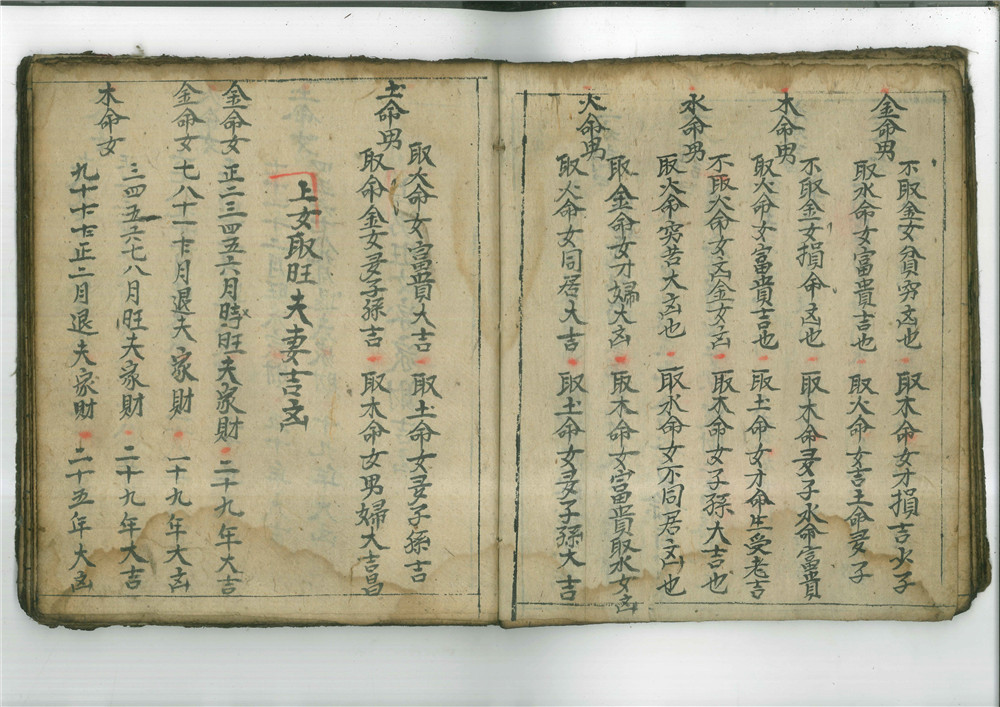 金命男
不取金女貧窮凶也 取木命女才損吉火子
取水命女富貴吉也 取火命女吉土命多子
木命男
不取金女損命凶也 取木命多子水命富貴
取火命女富貴吉也 取土命女才命生受老吉
水命男
不取火命女凶金女凶 取木命女子孫大吉也
取火命窮苦大凶也 取水命女不同居凶也
火命男
取金命女才婦大凶 取木命女富貴取水女凶
取火命女同居大吉 取土命女多子孫大吉
土命男
取火命女富貴大吉 取土命女多子孫吉
取命金女多子孫吉 取木命女男婦大吉昌
上女取旺夫妻吉凶
金命女 正二三四五六月時旺夫家財 二十九年大吉
金命女 七八十一十二月退夫家財 一十九年大凶
木命女
三四五六七八月旺夫家財 二十九年大吉
九十十一十二正二月退夫家財 二十五年大凶